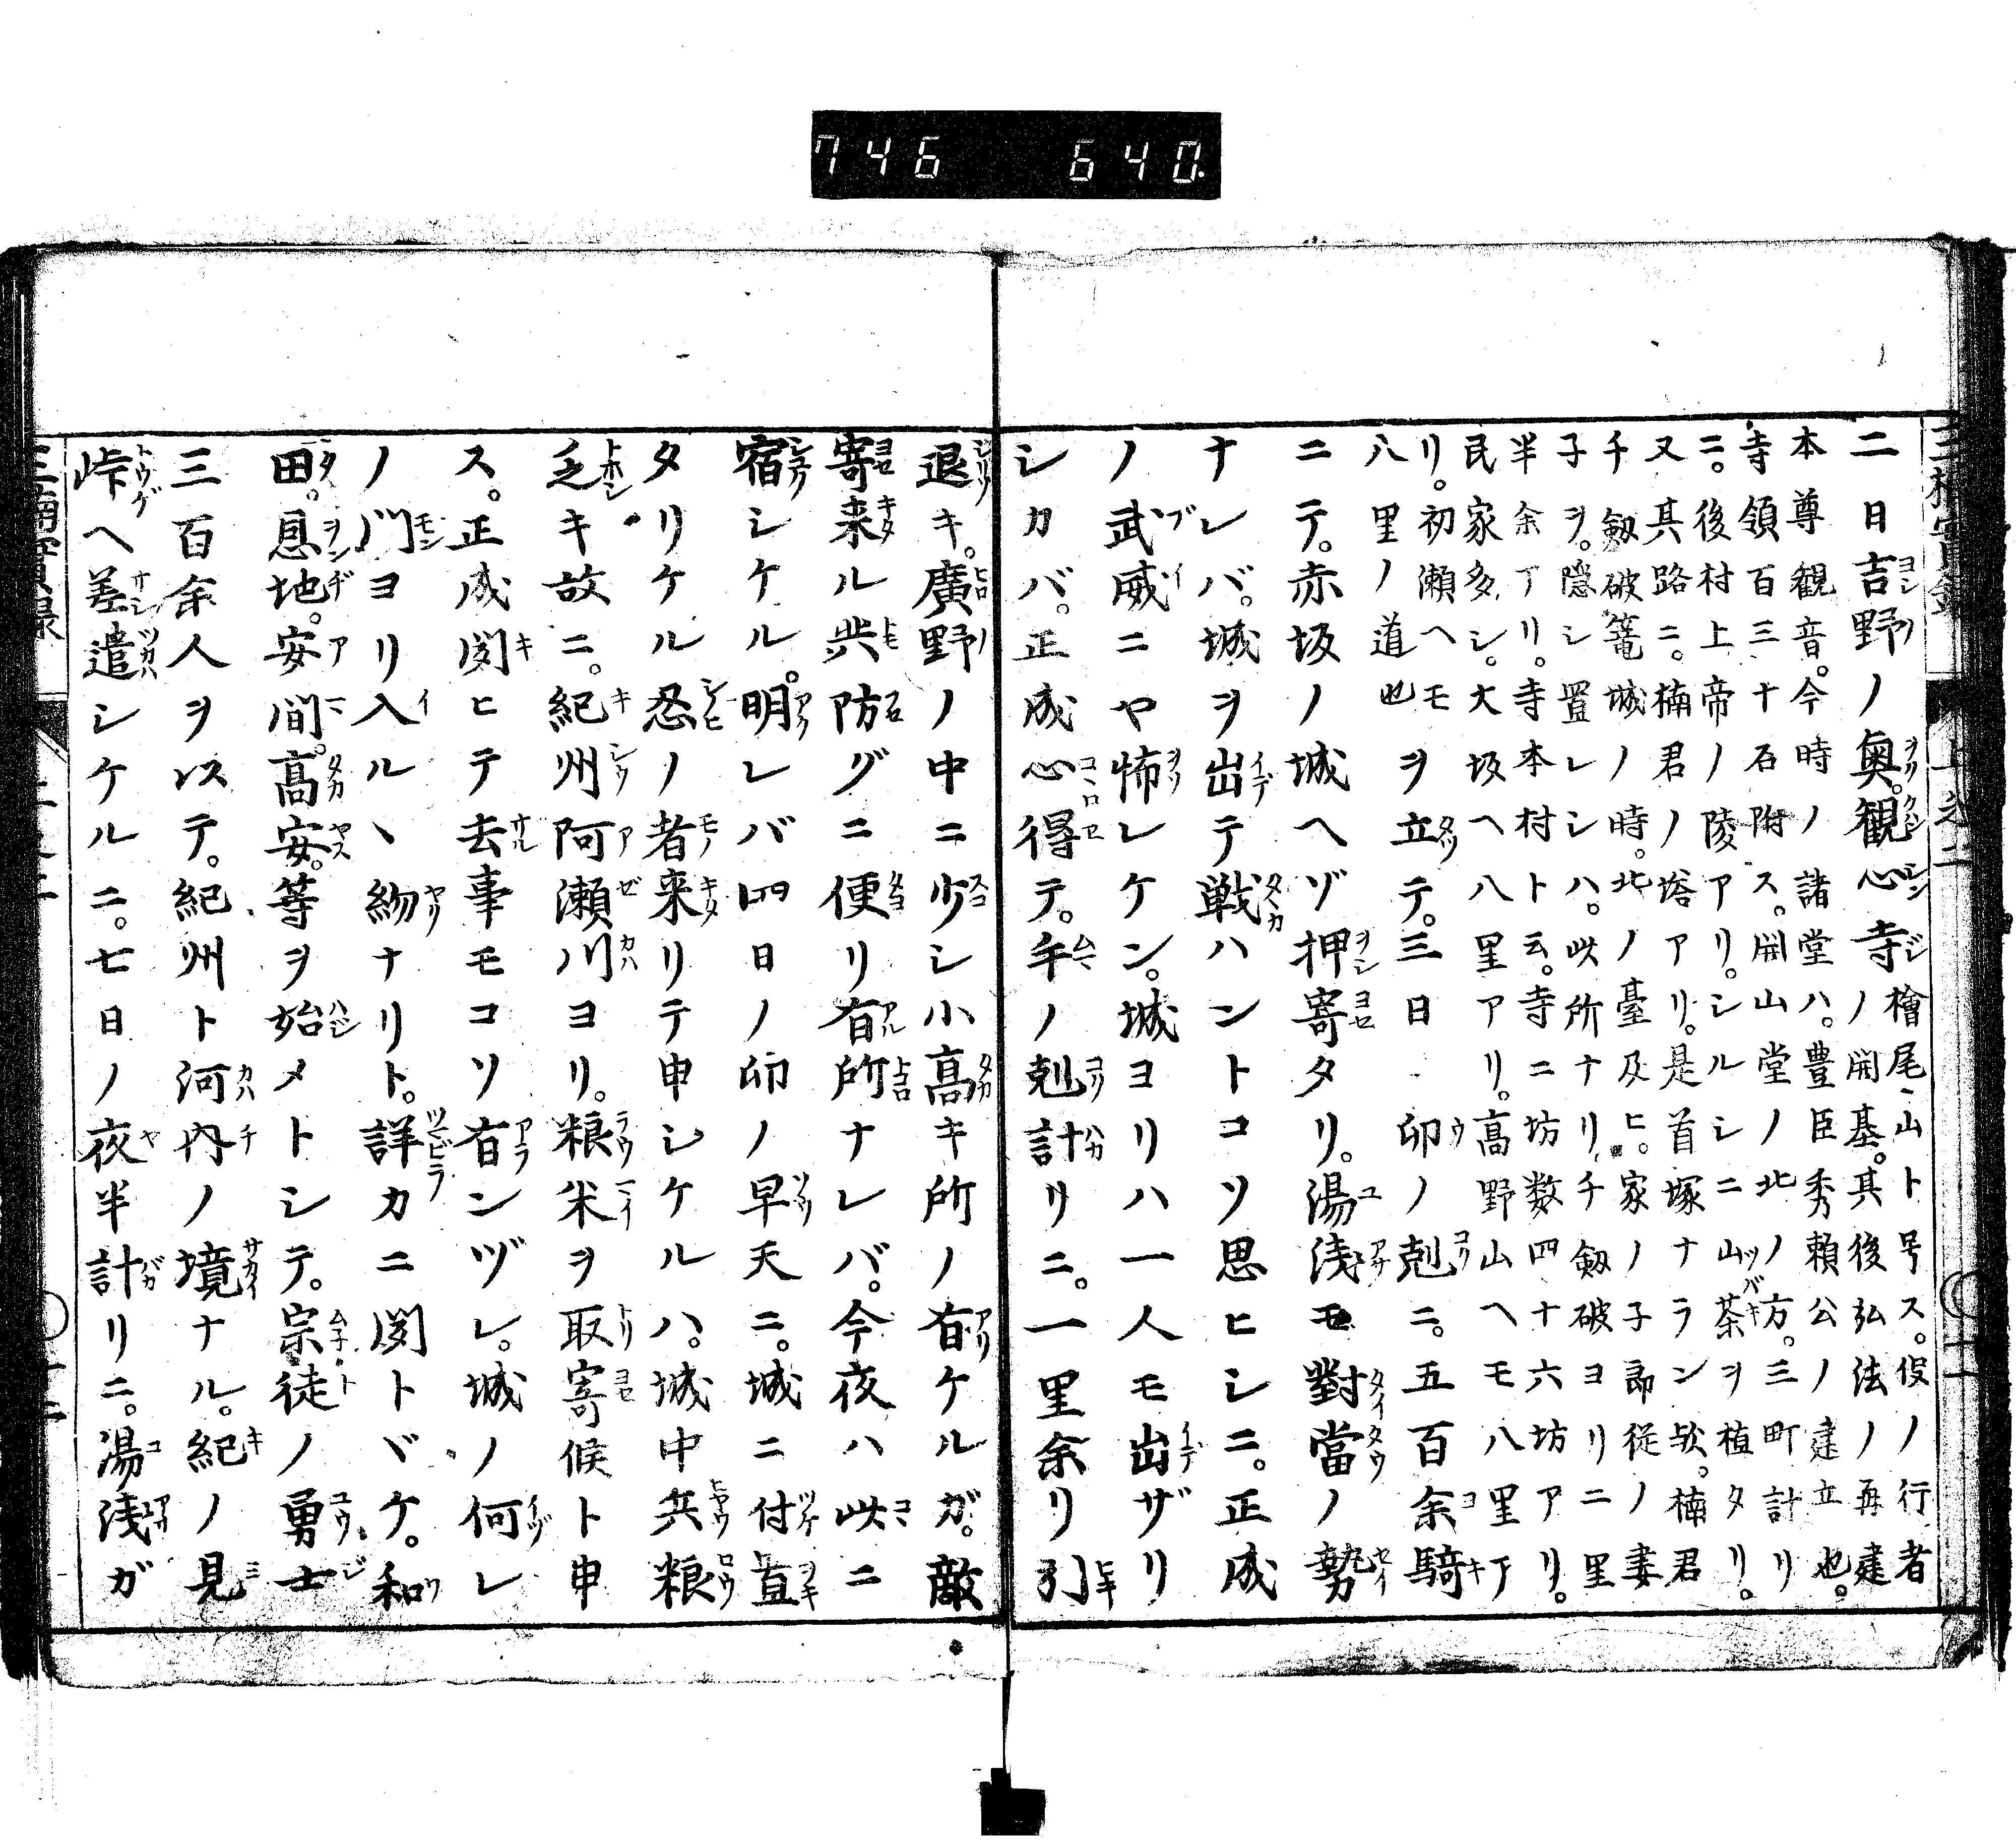 746 640.
三楠實錄 上之二
二日吉野ノ奥。観心寺 檜尾山ト号ス。役ノ行者
ノ開基。其後弘法ノ再建
本尊観音。今時ノ諸堂ハ。豊臣秀頼公ノ建立也。
寺領百三十石附ス。開山堂ノ北ノ方。三町計リ
ニ。後村上帝ノ陵アリ。シルシニ山茶ヲ植タリ。
又其路ニ。楠君ノ塔アリ。是首塚ナラン欤。楠君
千劔破篭城ノ時。北ノ臺及ヒ。家ノ子郎従ノ妻
子ヲ。隠シ置レシハ。此所ナリ。千劔破ヨリニ里
半余丁リ。寺本村ト云。寺ニ坊数四十六坊アリ。
民家多シ。大坂ヘ八里アリ。高野山ヘモ八里丁
リ。初瀬ヘモ
八里ノ道也 ヲ立テ。三日ノ卯ノ剋ニ。五百余騎
ニテ。赤坂ノ城ヘゾ押寄タリ。湯浅モ對當ノ勢
ナレバ。城ヲ出テ戦ハントコソ思ヒシニ。正成
ノ武威ニヤ怖レケン。城ヨリハ一人モ出ザリ
シカバ。正成心得テ。午ノ剋計リニ。一里余リ引
退キ。廣野ノ中ニ少シ小高キ所ノ有ケルガ。敵
寄来ル共防グニ便リ有所ナレバ。今夜ハ此ニ
宿シケル。明レバ四日ノ卯ノ早天ニ。城ニ付置
タリケル忍ノ者来リテ申シケルハ。城中兵粮
乏キ故ニ。紀州阿瀬川ヨリ。粮米ヲ取寄候ト申
ス。正成聞ヒテ去事モコソ有ンヅレ。城ノ何レ
ノ門ヨリ入ル丶物ナリト。詳カニ聞トヾケ。和
田。恩地。安間。高安。等ヲ始メトシテ。宗徒ノ勇士
三百余人ヲ以テ。紀州ト河内ノ境ナル。紀ノ見
峠ヘ差遣シケルニ。七日ノ夜半計リニ。湯浅ガ
三楠實録